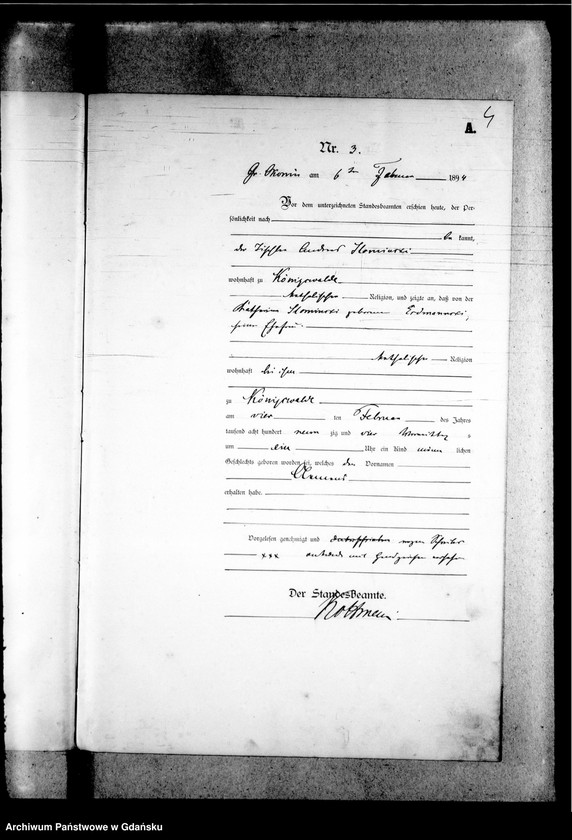 4
A.
Nr. 3.
am 6ten Februar 1894
Vor dem unterzeichneten Standesbeamten erschien heute, der Per-
sönlichkeit nach
be kannt,
der Tischler
wohnhaft zu Königswalde
katholischer Religion, und zeigte an, daß von der
geborene
seiner Ehefrau
katholischer Religion
wohnhaft bei ihm
zu Königswalde
am vier ten Februar des Jahres
tausend acht hundert neun zig und vier Vormittags
um Uhr ein Kind männ lichen
Geschlechts geboren worden sei, welches den Vornamen
Clemens
erhalten habe.
Vorgelesen, genehmigt und wegen Schreib
xxx mit Handzeichen versehen
Der Standesbeamte.
Archiwum Państwowe w Gdańsku